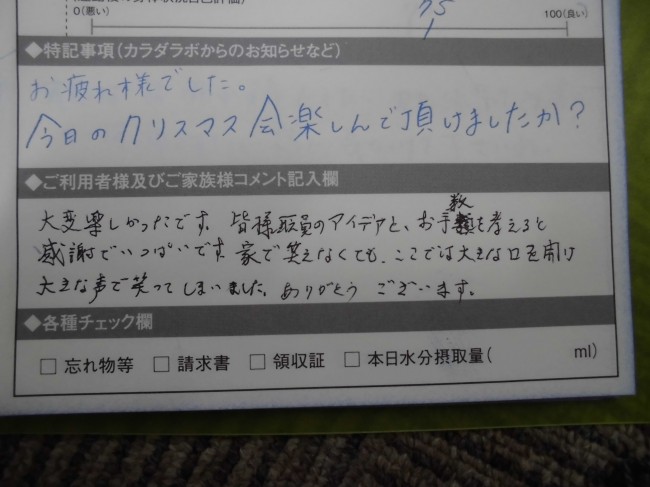 0(悪い)
100(良い)
75
◆特記事項(カラダラボからのお知らせなど)
お疲れ様でした。
今日のクリスマス会楽しんで頂けましたか?
◆ご利用者様及びご家族様コメント記入欄
大変楽しかったです。皆様職員のアイデアと、お手数を考えると
感謝でいっぱいです。家で笑えなくても、ここでは大きな口を開け
大きな声で笑ってしまいました。ありがとうございます。
◆各種チェック欄
□ 忘れ物等 □ 請求書 □ 領収証 □ 本日水分摂取量( ml)